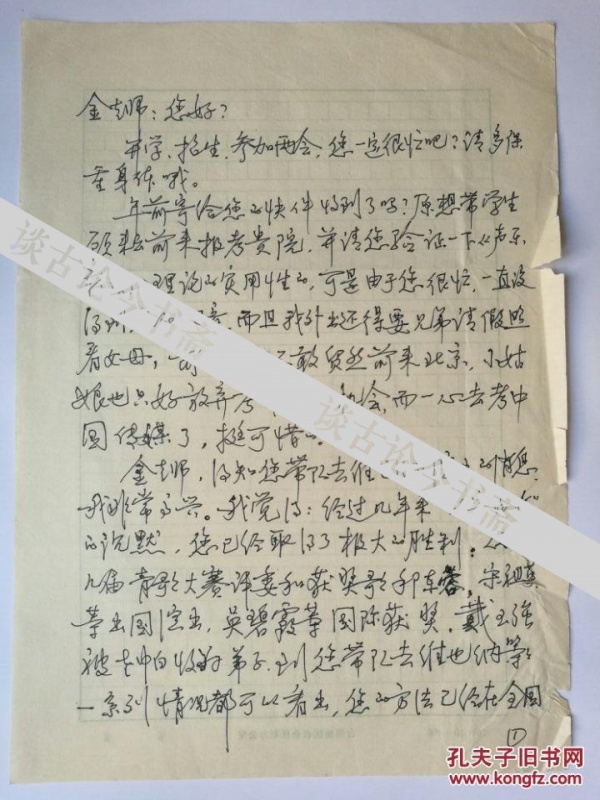 金老师：您好？
开学、招生、参加两会，您一定很忙吧？请多保
重身体哦。
年前寄给您的快件收到了吗？原想带学生
顾来前来报考贵院，并请您验证一下《声乐
理论的实用性的，可是由于您很忙，一直没
得到，而且我外出还得要兄弟请假照
看父母，敢贸然前来北京，小姑
娘也只好放弃考，而一心去考中
国传媒了，挺可惜的
金老师，得知您带队去维的消息，
我非常高兴。我觉得：经过几年来
的沉默，您已经取得了极大的胜利。从
几届青歌大赛评委和获奖歌手，宋祖英
等出国演出，吴碧霞等国际获奖，戴玉强
被老帕收为弟子，到您带队去维也纳等
一系列情况都可以看出，您的方法已经在全国
①
谈古论今书斋
孔夫子旧书网
www.kongfz.com